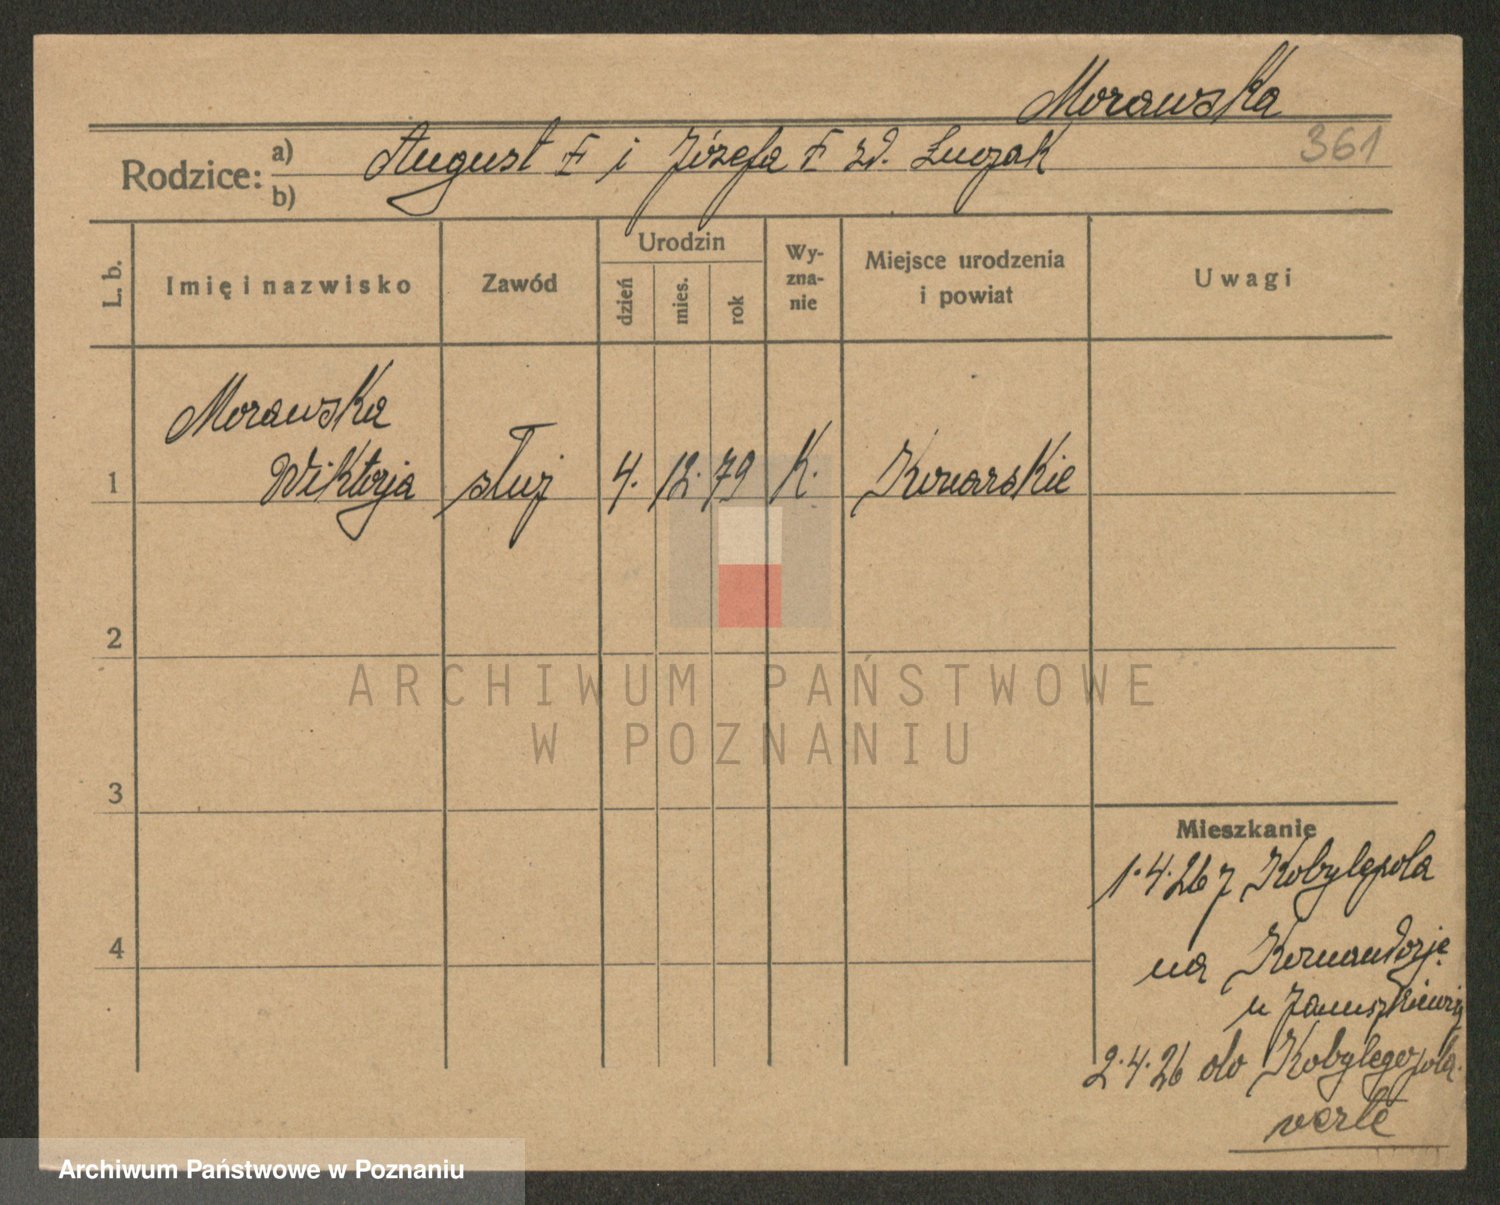 Morawska
361
Rodzice: a) August † i Józefa † zd. Luczak
b)
L. b.
Imię i nazwisko
Zawód
Urodzin
dzień
mies.
rok
Wy-
zna-
nie
Miejsce urodzenia
i powiat
Uwagi
Morawska
1 Wiktorja służ 4. 12. 79 K. Konarskie
2
3
4
Mieszkanie
1.4.26 z Kobylepola
na Komandorję
u Januszkiewicz
2.4.26 do Kobylegopola.
verte
ARCHIWUM PAŃSTWOWE
W POZNANIU
Archiwum Państwowe w Poznaniu